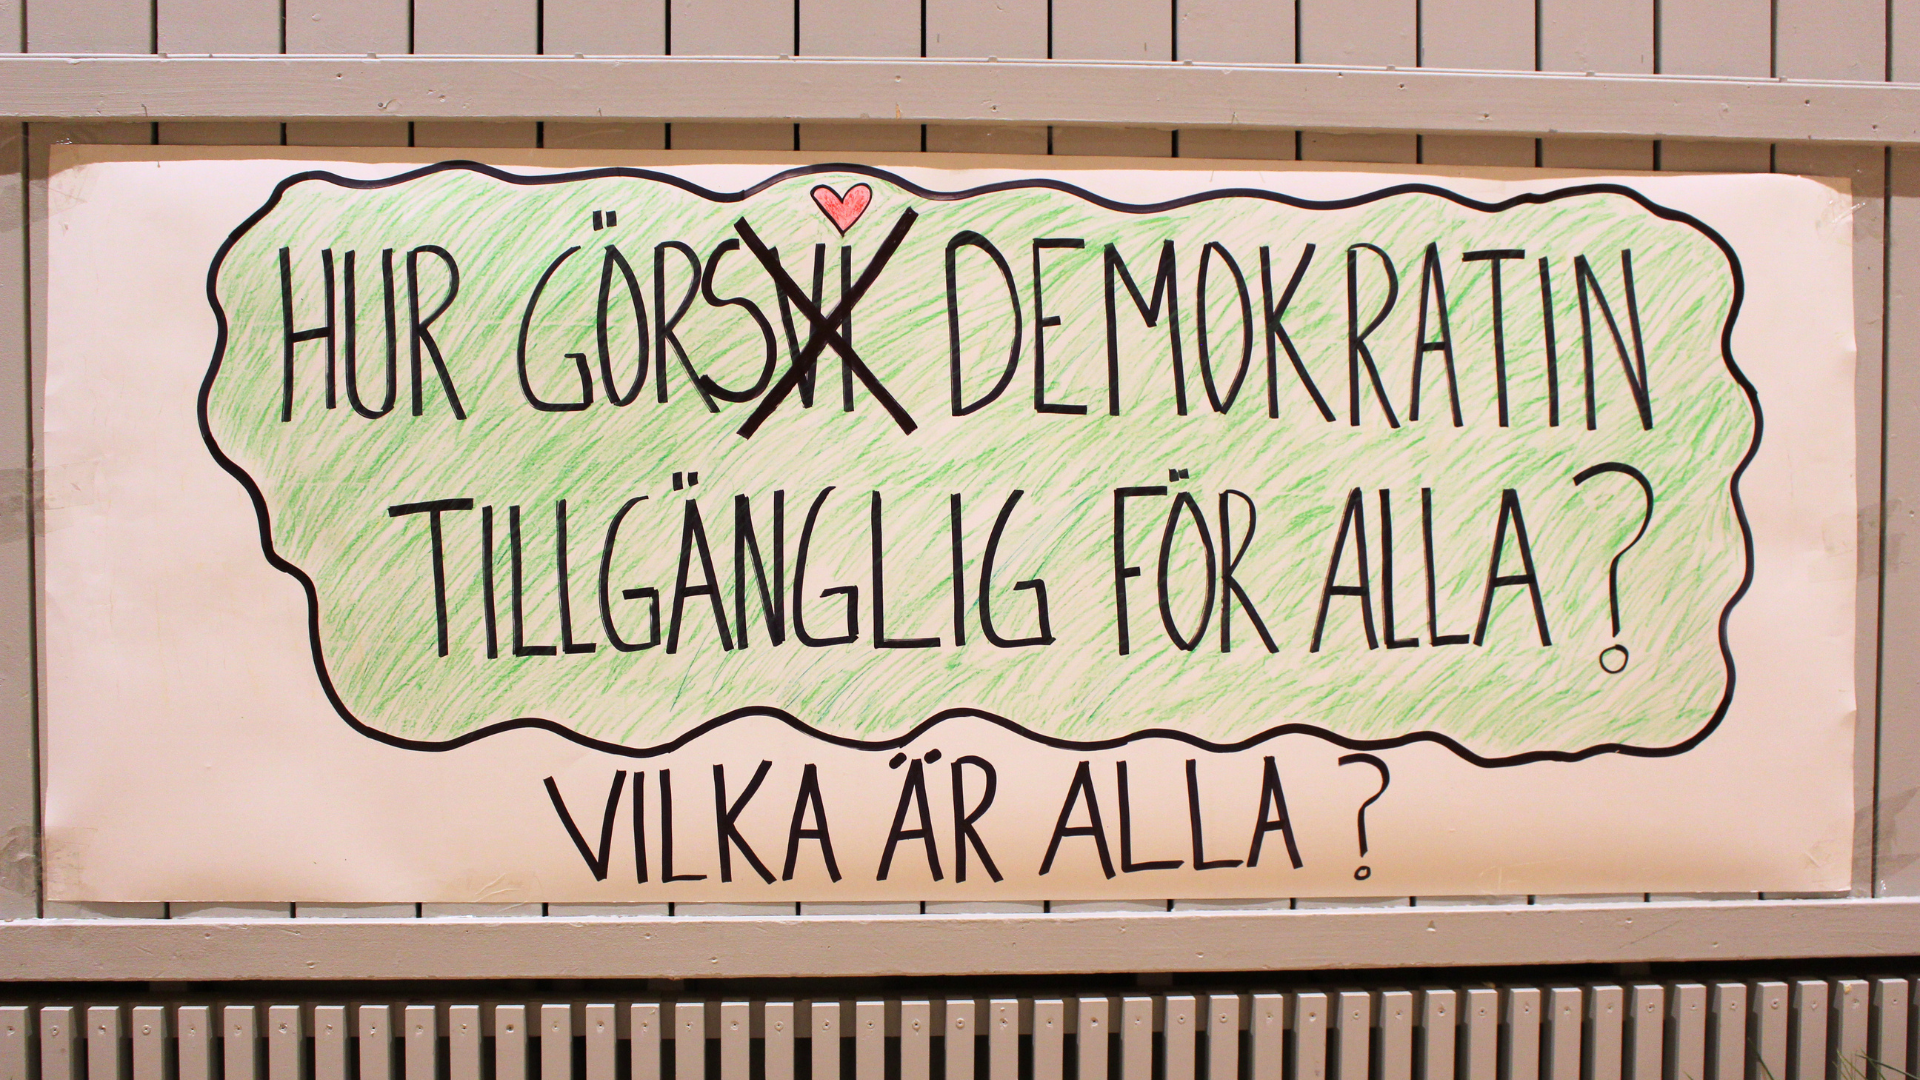 HUR GÖRS VI DEMOKRATIN
TILLGÄNGLIG FÖR ALLA?
VILKA ÄR ALLA?